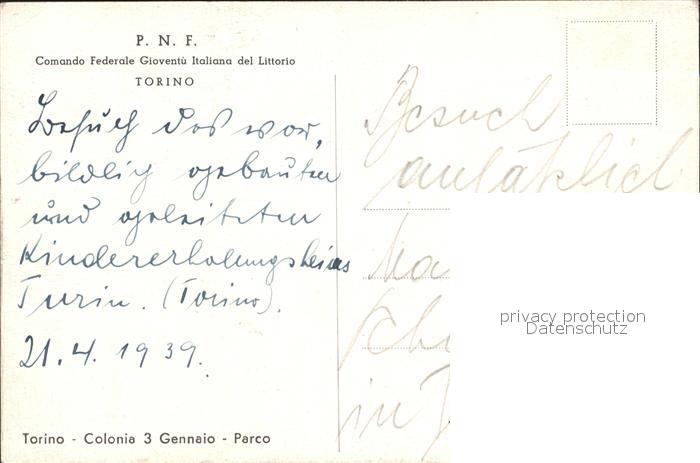 P. N. F.
Comando Federale Gioventù Italiana del Littorio
TORINO
Besuch des vor,
bildlich gebauten
und geleiteten
Kindererholungsheims
Turin. (Torino).
21.4.1939.
Torino - Colonia 3 Gennaio - Parco
Besuch
anläßlich
in
privacy protection
Datenschutz